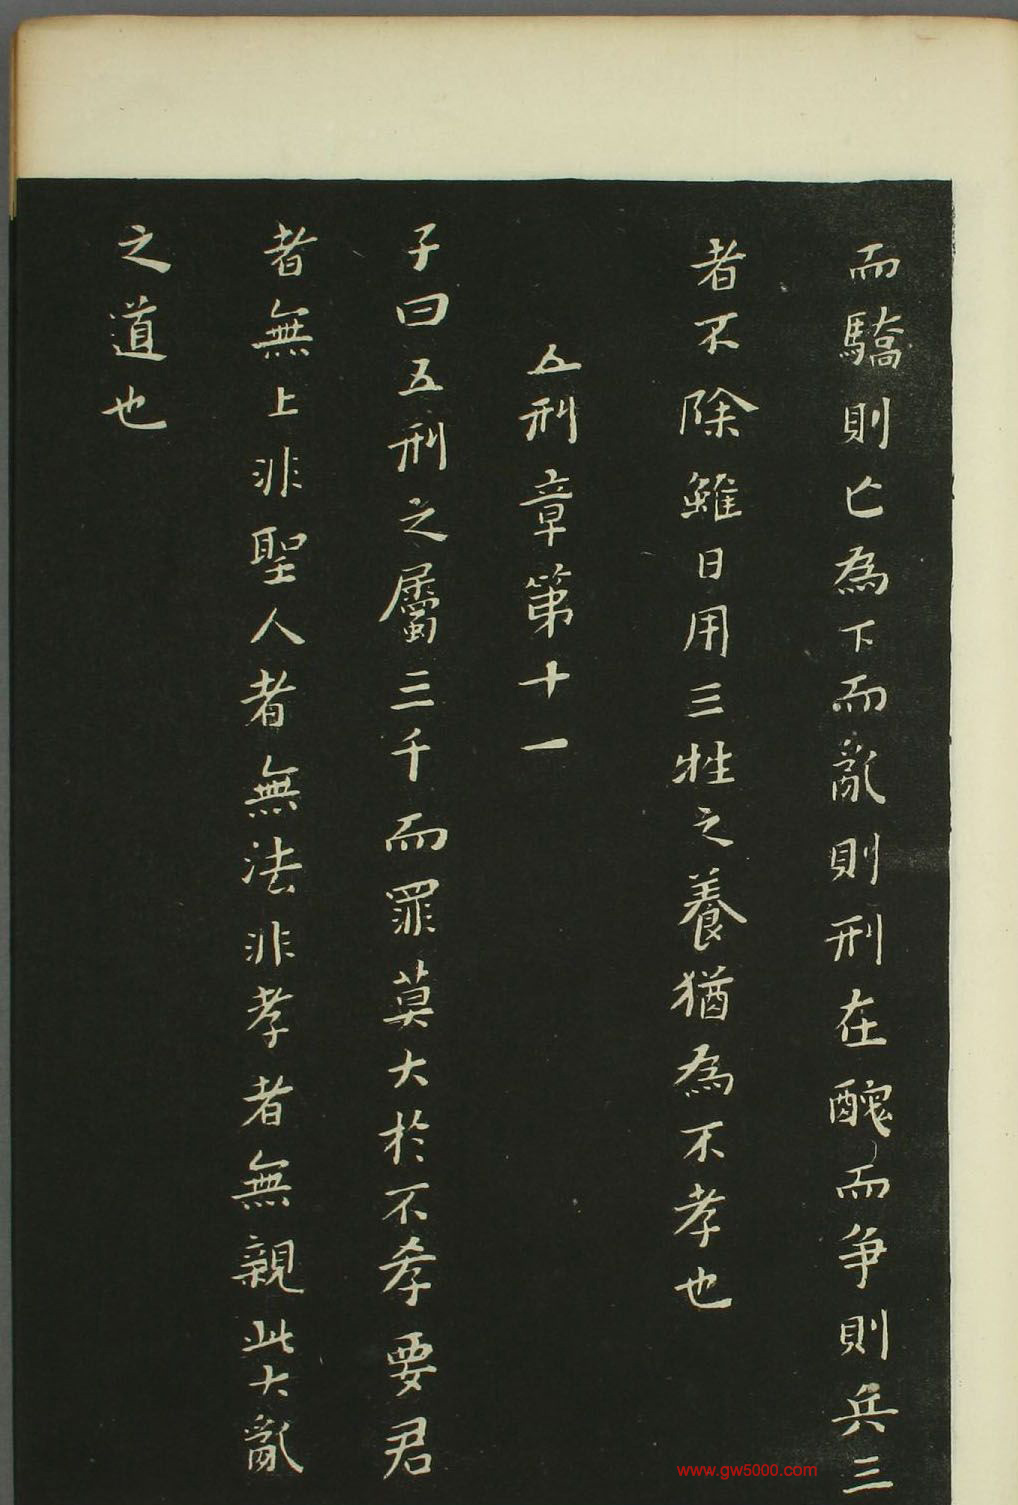 而驕則亡為下而亂則刑在醜而爭則兵三
者不除雖日用三牲之養猶為不孝也
五刑章第十一
子曰五刑之屬三千而罪莫大於不孝要君
者無上非聖人者無法非孝者無親此大亂
之道也
www.gw5000.com